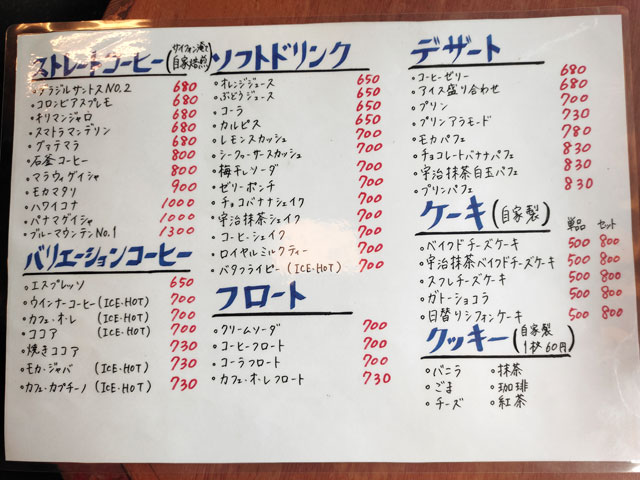 ストレートコーヒー(サイフォン淹て 自家焙煎)
・ブラジルサントスNO.2 680
・コロンビアスプレモ 680
・キリマンジャロ 680
・スマトラマンデリン 680
・グァテマラ 680
・石釜コーヒー 800
・マラウィゲイシャ 800
・モカマタリ 900
・ハワイコナ 1000
・パナマゲイシャ 1000
・ブルーマウンテンNo.1 1300
バリエーションコーヒー
・エスプレッソ 650
・ウインナーコーヒー(ICE・HOT) 700
・カフェ・オ・レ (ICE・HOT) 700
・ココア (ICE・HOT) 700
・焼きココア 730
・モカ・ジャバ (ICE・HOT) 730
・カフェ・カプチーノ (ICE・HOT) 730
ソフトドリンク
・オレンジジュース 650
・ぶどうジュース 650
・コーラ 650
・カルピス 650
・レモンスカッシュ 700
・シークァーサースカッシュ 700
・梅干しソーダ 700
・ゼリーポンチ 700
・チョコバナナシェイク 700
・宇治抹茶シェイク 700
・コーヒーシェイク 700
・ロイヤルミルクティー 700
・バタフライピー (ICE・HOT) 700
フロート
・クリームソーダ 700
・コーヒーフロート 700
・コーラフロート 700
・カフェ・オ・レフロート 730
デザート
・コーヒーゼリー 680
・アイス盛り合わせ 680
・プリン 700
・プリンアラモード 730
・モカパフェ 780
・チョコレートバナナパフェ 830
・宇治抹茶白玉パフェ 830
・プリンパフェ 830
ケーキ(自家製) 単品 セット
・ベイクドチーズケーキ 500 800
・宇治抹茶ベイクドチーズケーキ 500 800
・スフレチーズケーキ 500 800
・ガトーショコラ 500 800
・日替りシフォンケーキ 500 800
クッキー(自家製 1枚60円)
・バニラ ・抹茶
・ごま ・珈琲
・チーズ ・紅茶